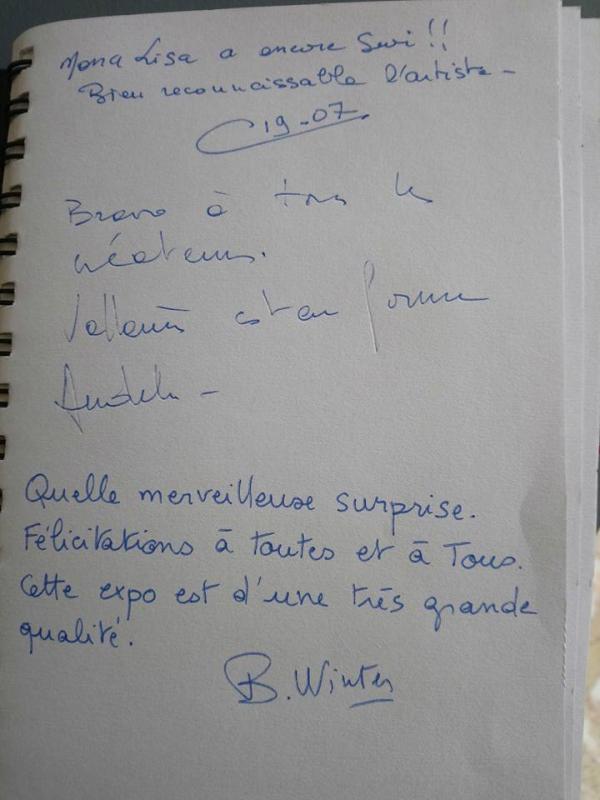 Mona Lisa a encore Sevi !!
Bien reconnaissable l'artiste -
19-07
Bravo à tous les
créateurs.
Vallauris est en forme
Quelle merveilleuse surprise.
Félicitations à toutes et à Tous.
Cette expo est d'une très grande
qualité.
B. Winter